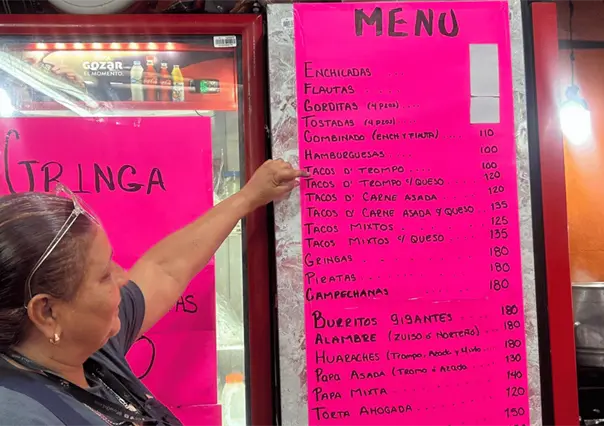 GOZAR
EL MOMENTO.
GRINGA
AS
O
MENU
ENCHILADAS
FLAUTAS
GORDITAS (4 PZAS)
TOSTADAS (4 PZAS)
COMBINADO (ENCH Y FLAUTA) .... 110
HAMBURGUESAS .. 100
TACOS D' TROMPO .... 100
TACOS D' TROMPO Y QUESO .... 120
TACOS D' CARNE ASADA .. 120
TACOS D' CARNE ASADA Y QUESO .. 135
TACOS MIXTOS .... 125
TACOS MIXTOS Y QUESO .... 135
GRINGAS .... 180
PIRATAS .... 180
CAMPECHANAS .... 180
BURRITOS GIGANTES .... 180
ALAMBRE (ZUISO Ó NORTEÑO) .. 180
HUARACHES (Trompo, Asada y Mixto .. 180
PAPA ASADA (TROMPO Ó ASADA .. 130
PAPA MIXTA .... 140
TORTA AHOGADA .... 120
150